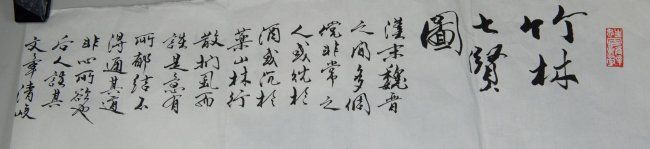 竹林
七賢
圖
漢末魏晉
之間多倜
儻非常之
人或耽於
酒或沉於
藥山林行
散捫虱而
談是意有
所郁結不
得通其道
非心所欲也
后人談其
文章清峻